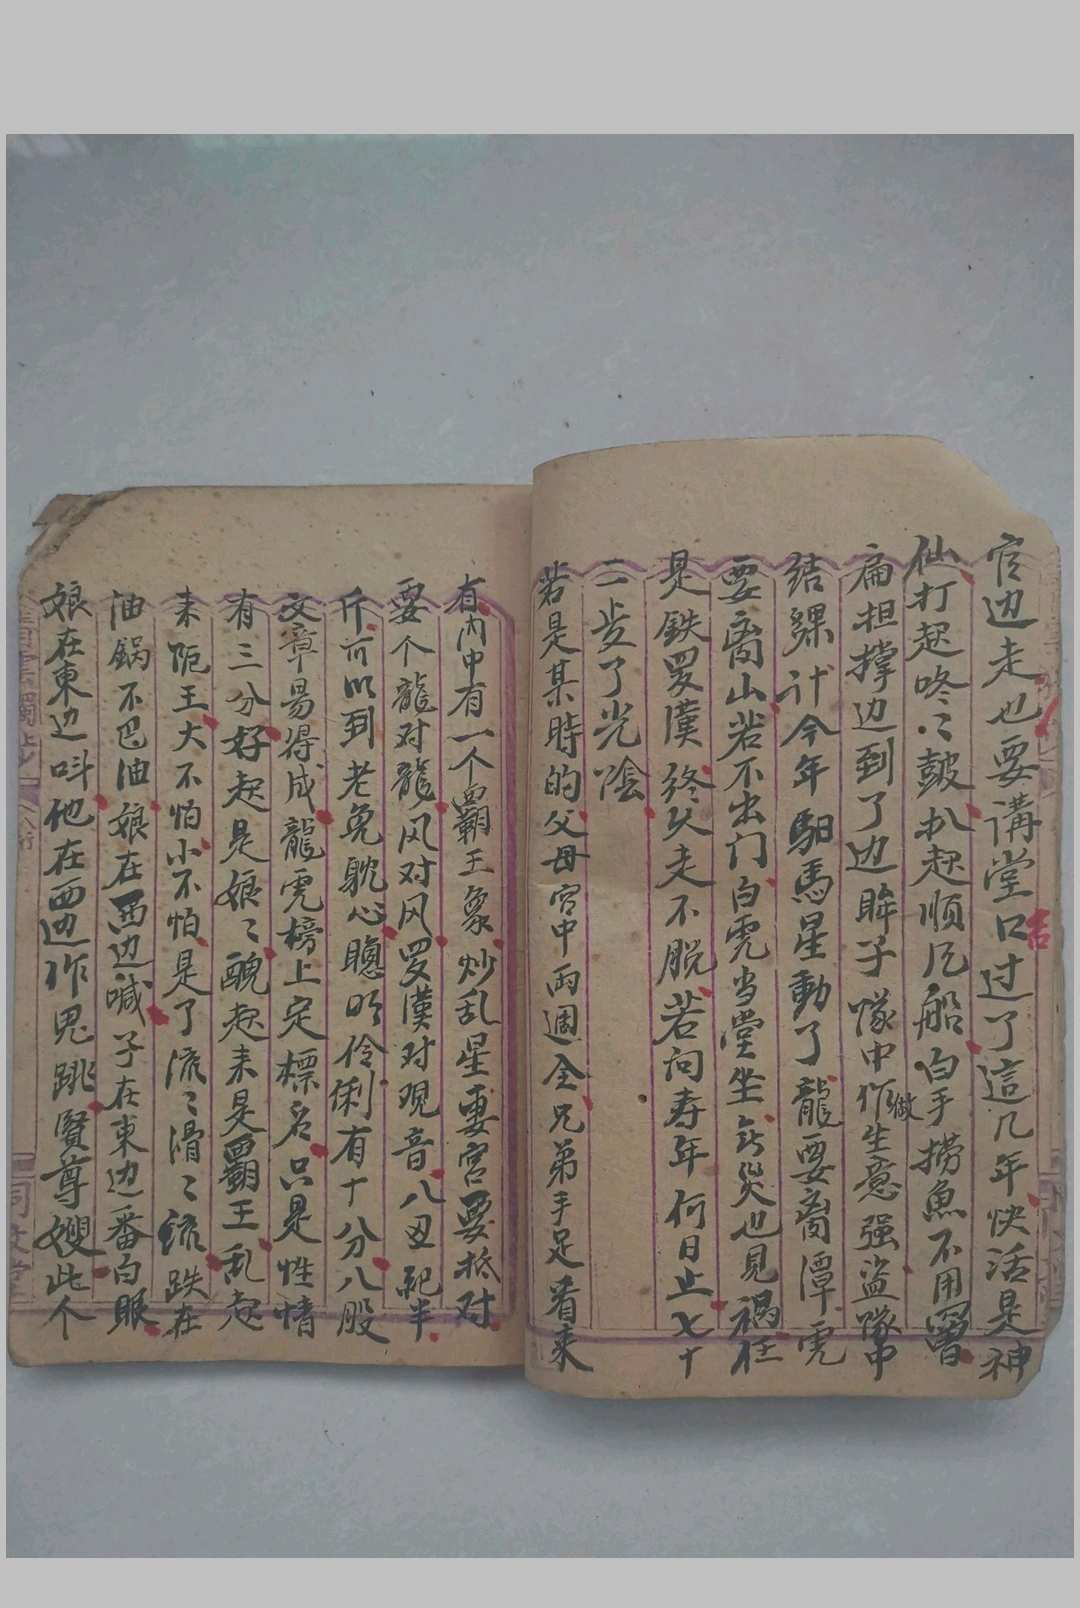 官边走也要講堂口过了這几年快活是神
仙打起咚〻鼓扒起顺风船白手捞魚不用罾
扁担撑边到了边眸子隊中作做生意强盗隊中
结綶计今年馹馬星動了龍要离潭虎
要离山若不出门白虎当堂坐 災也見禍在
是鉄罗漢终久走不脱若问寿年何日止七十
二步了光陰
若是某時的父母宫中両週全兄弟手足看来
有内中有一个霸王象炒乱星 宫要抵对
要个龍对龍风对风罗漢对观音八 半
斤所以到老免躭心聰明伶俐有十分八股
文章易得成龍虎榜上定標名只是性情
有三分好起是娘〻醜起来是霸王乱起
来 王大不怕小不怕是了流〻滑〻 跌在
油鍋不巴油娘在西边喊子在東边番白眼
娘在東边呌他在西边作鬼跳賢尊嫂此个
吉